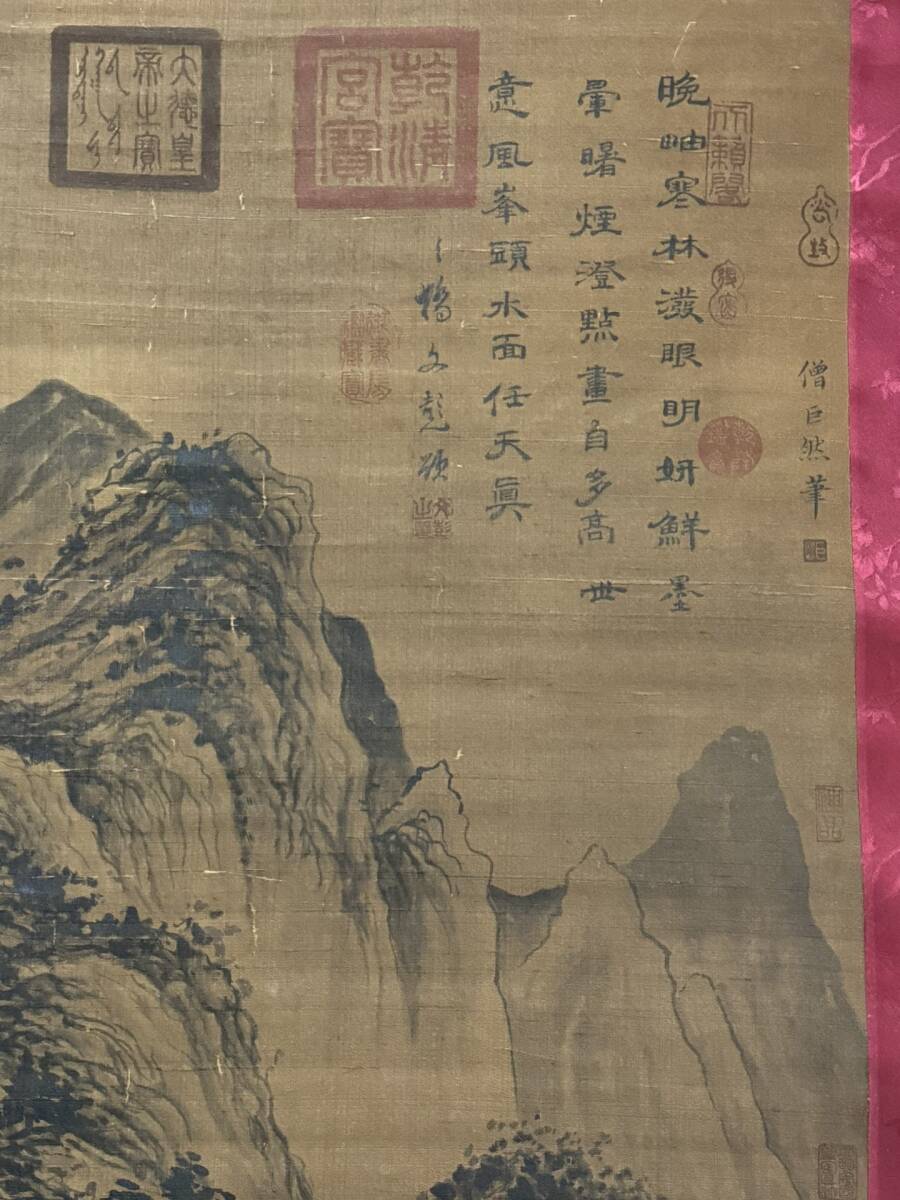 僧巨然筆
天籟閣
晚岫寒林潑眼明妍鮮墨
暈曙煙澄點畫自多高世
意風峯頭水面任天眞
三橋文彭題
文彭之印
乾清宮寶
大德皇帝之寶